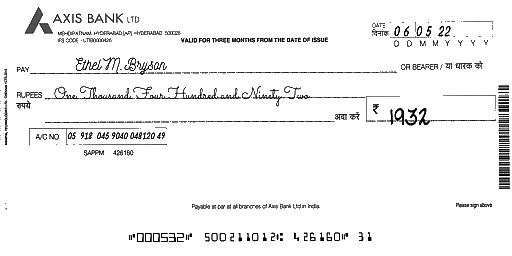 AXIS BANK LTD
MEHDIPATNAM, HYDERABAD [AP] -HYDERABAD 500028
IFS CODE - UTIB0000426
VALID FOR THREE MONTHS FROM THE DATE OF ISSUE
DATE
दिनांक 06 05 22
D D M M Y Y Y Y
PAY Ethel M. Bryson OR BEARER / या धारक को
RUPEES One Thousand Four Hundred and Ninety Two
रुपये अदा करें ₹ 1932
A/C NO 05 918 045 9040 048120 49
SAPPM 426160
Payable at par at all branches of Axis Bank Ltd in India.
Please sign above
"000532" 500211012: 426160" 31